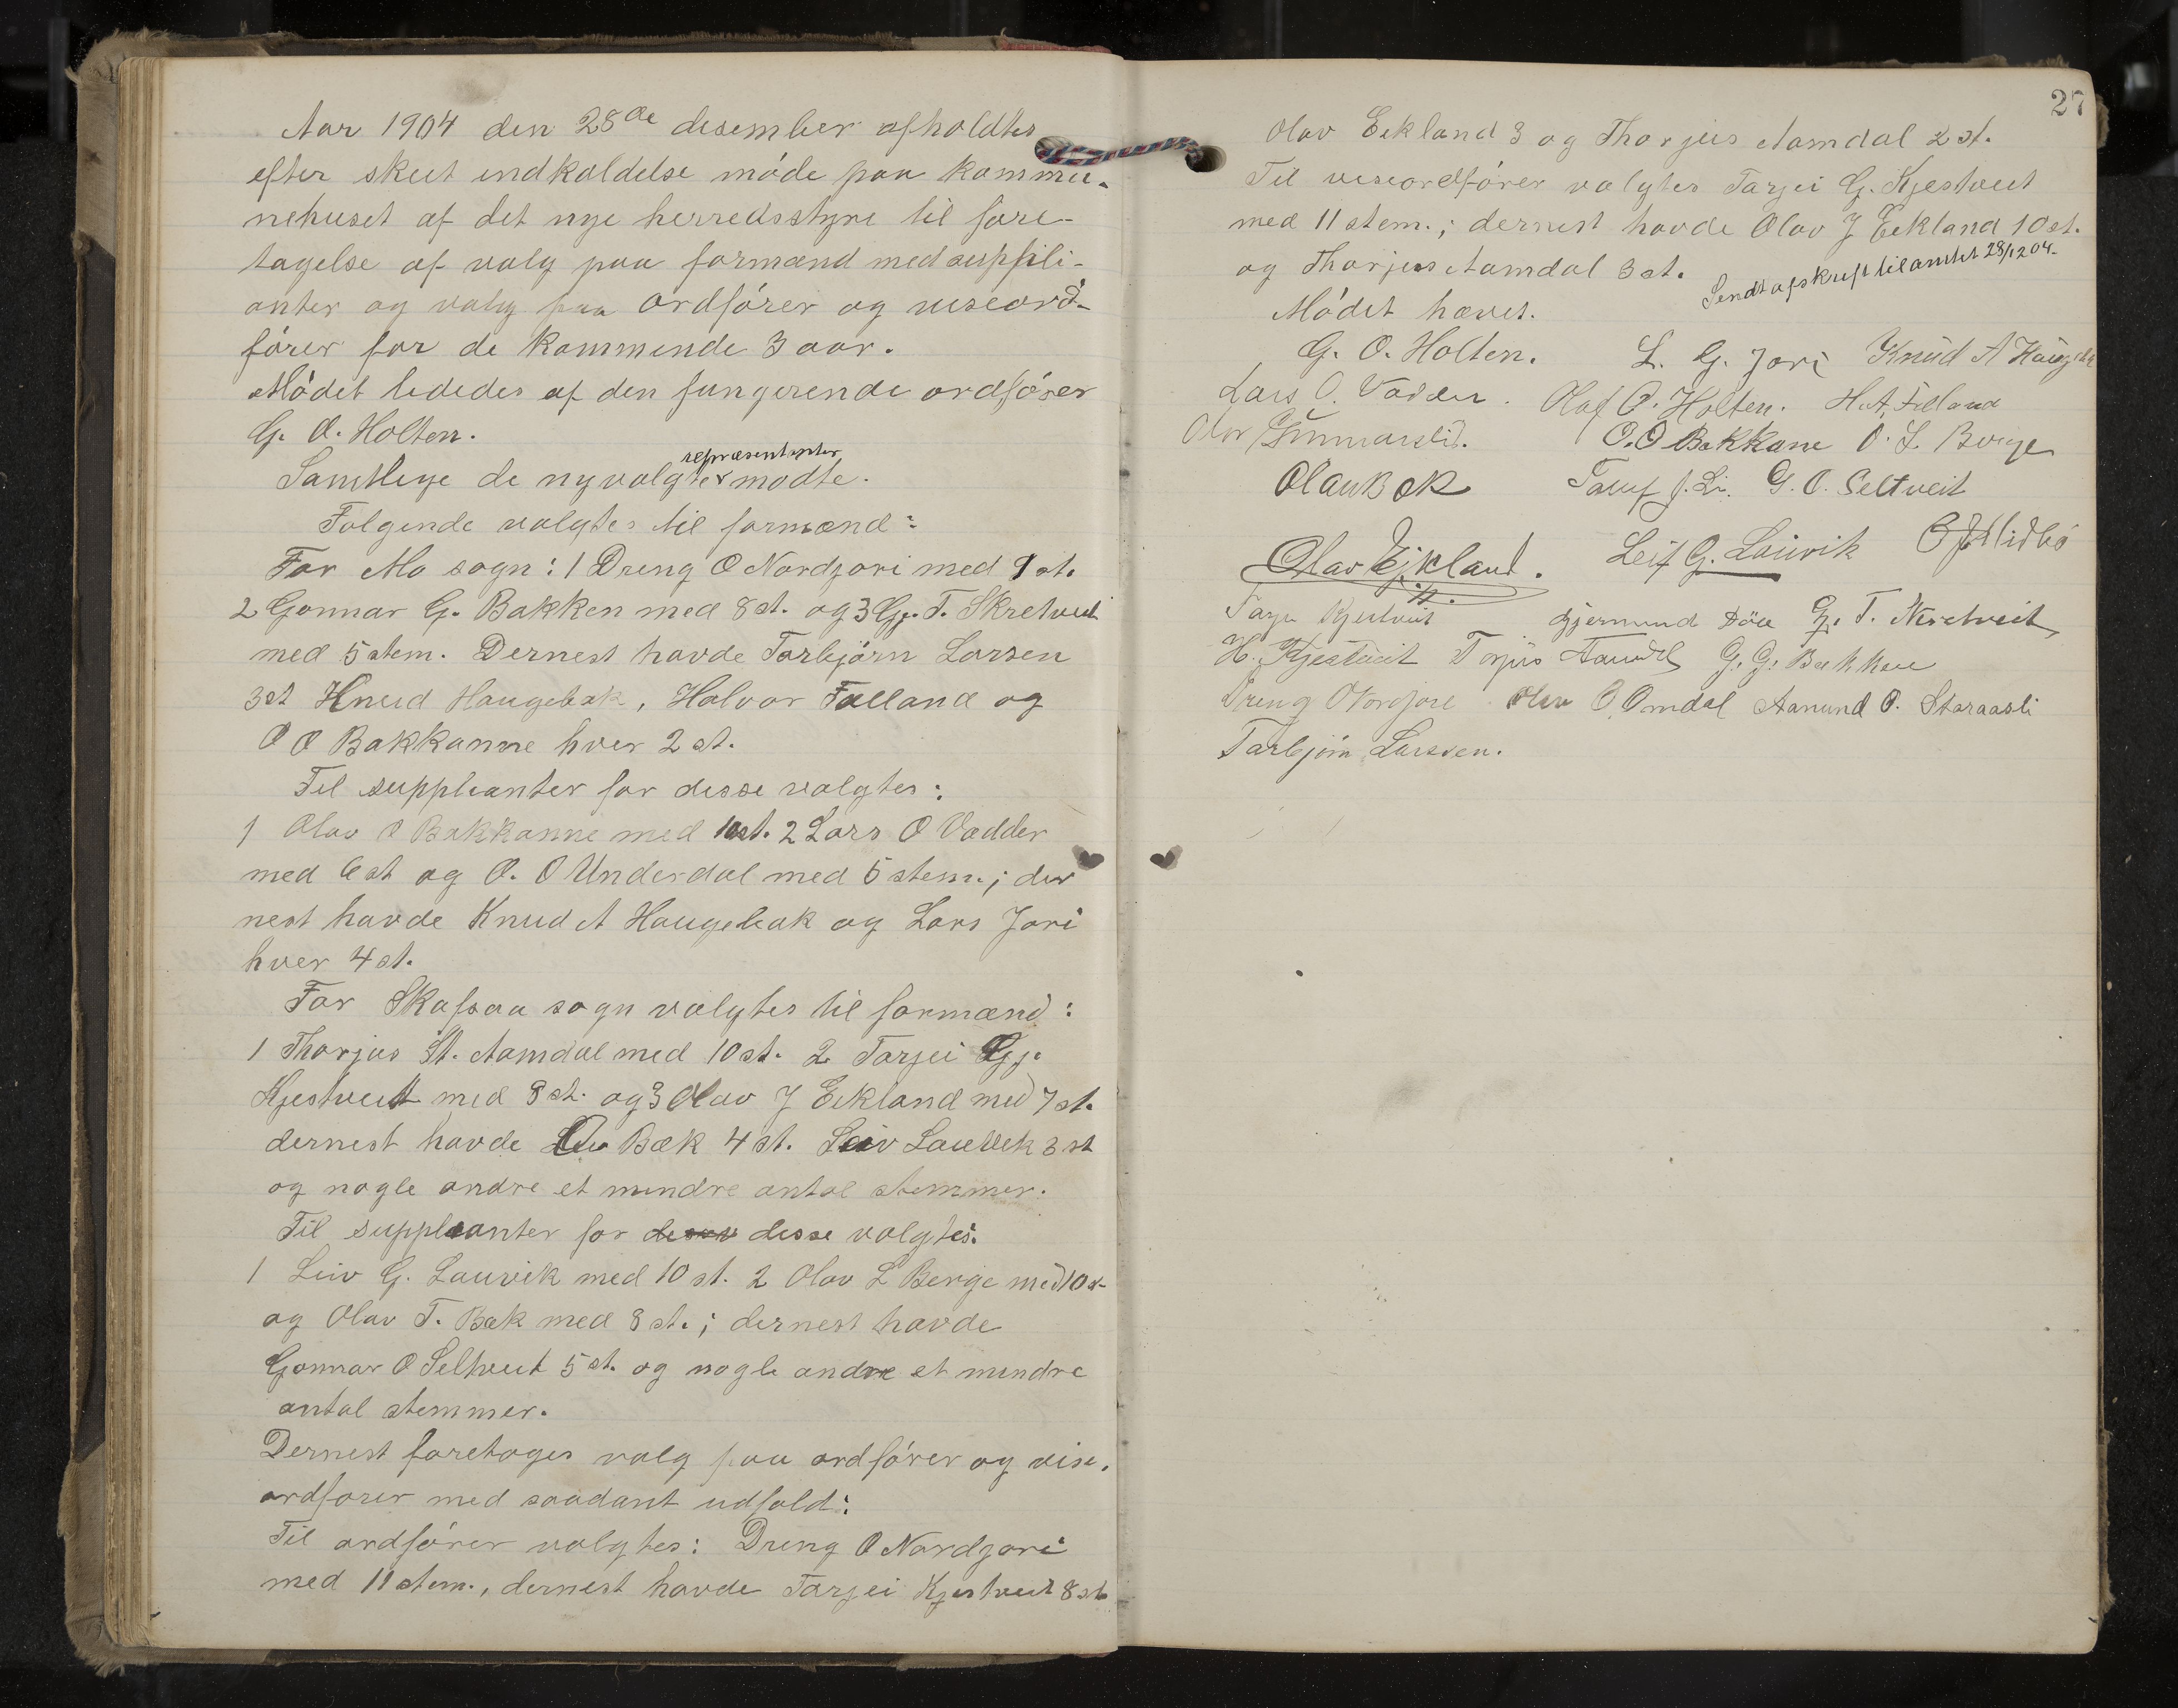 Aar 1904 den 28de desember afholdtes
efter skeet indkaldelse møde paa kommu-
nehuset af det nye herredsstyre til fore-
tagelse af valg paa formænd med suppli-
anter og valg paa ordfører og viseord-
fører for de kommende 3 aar.
Mødet lededes af den fungerende ordfører
G. O. Holten.
repræsentanter
Samtlige de nyvalgte mødte.
Følgende valgtes til formænd:
For Mo sogn: 1 Dreng O Nordjore med 9 st.
2 Gonnar G. Bakken med 8 st. og 3 Gj. T. Skretveit
med 5 stem. Dernest havde Tarbjørn Larsen
3 st Knud Haugebak, Halvor Felland og
O O Bakkanne hver 2 st.
Til suppleanter for disse valgtes:
1 Olav O Bakkanne med 10 st. 2 Lars O Vadder
med 6 st og O. O Underdal med 5 stem.; der
nest havde Knud A Haugebak og Lars Jore
hver 4 st.
For Skafsaa sogn valgtes til formænd:
1 Thorjus St. Aamdal med 10 st. 2 Tarjei Gj.
Kjestveit med 8 st. og 3 Olav J Eekland med 7 st.
dernest havde Bæk 4 st. Leiv Lauvik 3 st
og nogle andre et mindre antal stemmer.
Til suppleanter for disse valgtes:
1 Leiv G. Lauvik med 10 st. 2 Olav L Berge med 10 st
og Olav T. Bæk med 8 st.; dernest havde
Gonnar O Seltveit 5 st. og nogle andre et mindre
antal stemmer.
Dernest foretoges valg paa ordfører og vise-
ordfører med saadant udfald:
Til ordfører valgtes: Dreng O Nordjore
med 11 stem., dernest havde Tarjei Kjestveit 8 st.
27
Olav Eekland 3 og Thorjus Aamdal 2 st.
Til viseordfører valgtes Tarjei G. Kjestveit
med 11 stem.; dernest havde Olav J Eekland 10 st.
og Thorjus Aamdal 3 st.
Sendt afskrift til amtet 28/12 04.
Mødet hævet.
G. O. Holten. L. G. Jore Knud A Haugebak
Lars O. Vadder. Olaf O. Holten. H. A. Felland
Olav O. O Bakkane O. L. Berge
Olau Bæk J. Li. G. O. Seltveit
Olav Ejkland. Leif G. Lauvik
Tarjei Kjestveit Gjermund G. T.
H. Kjestveit Torjus Aamdal G. G. Bakken
Dreng O Nordjore Olav O. Omdal Aanund O. Staraasli
Tarbjørn Larssen.